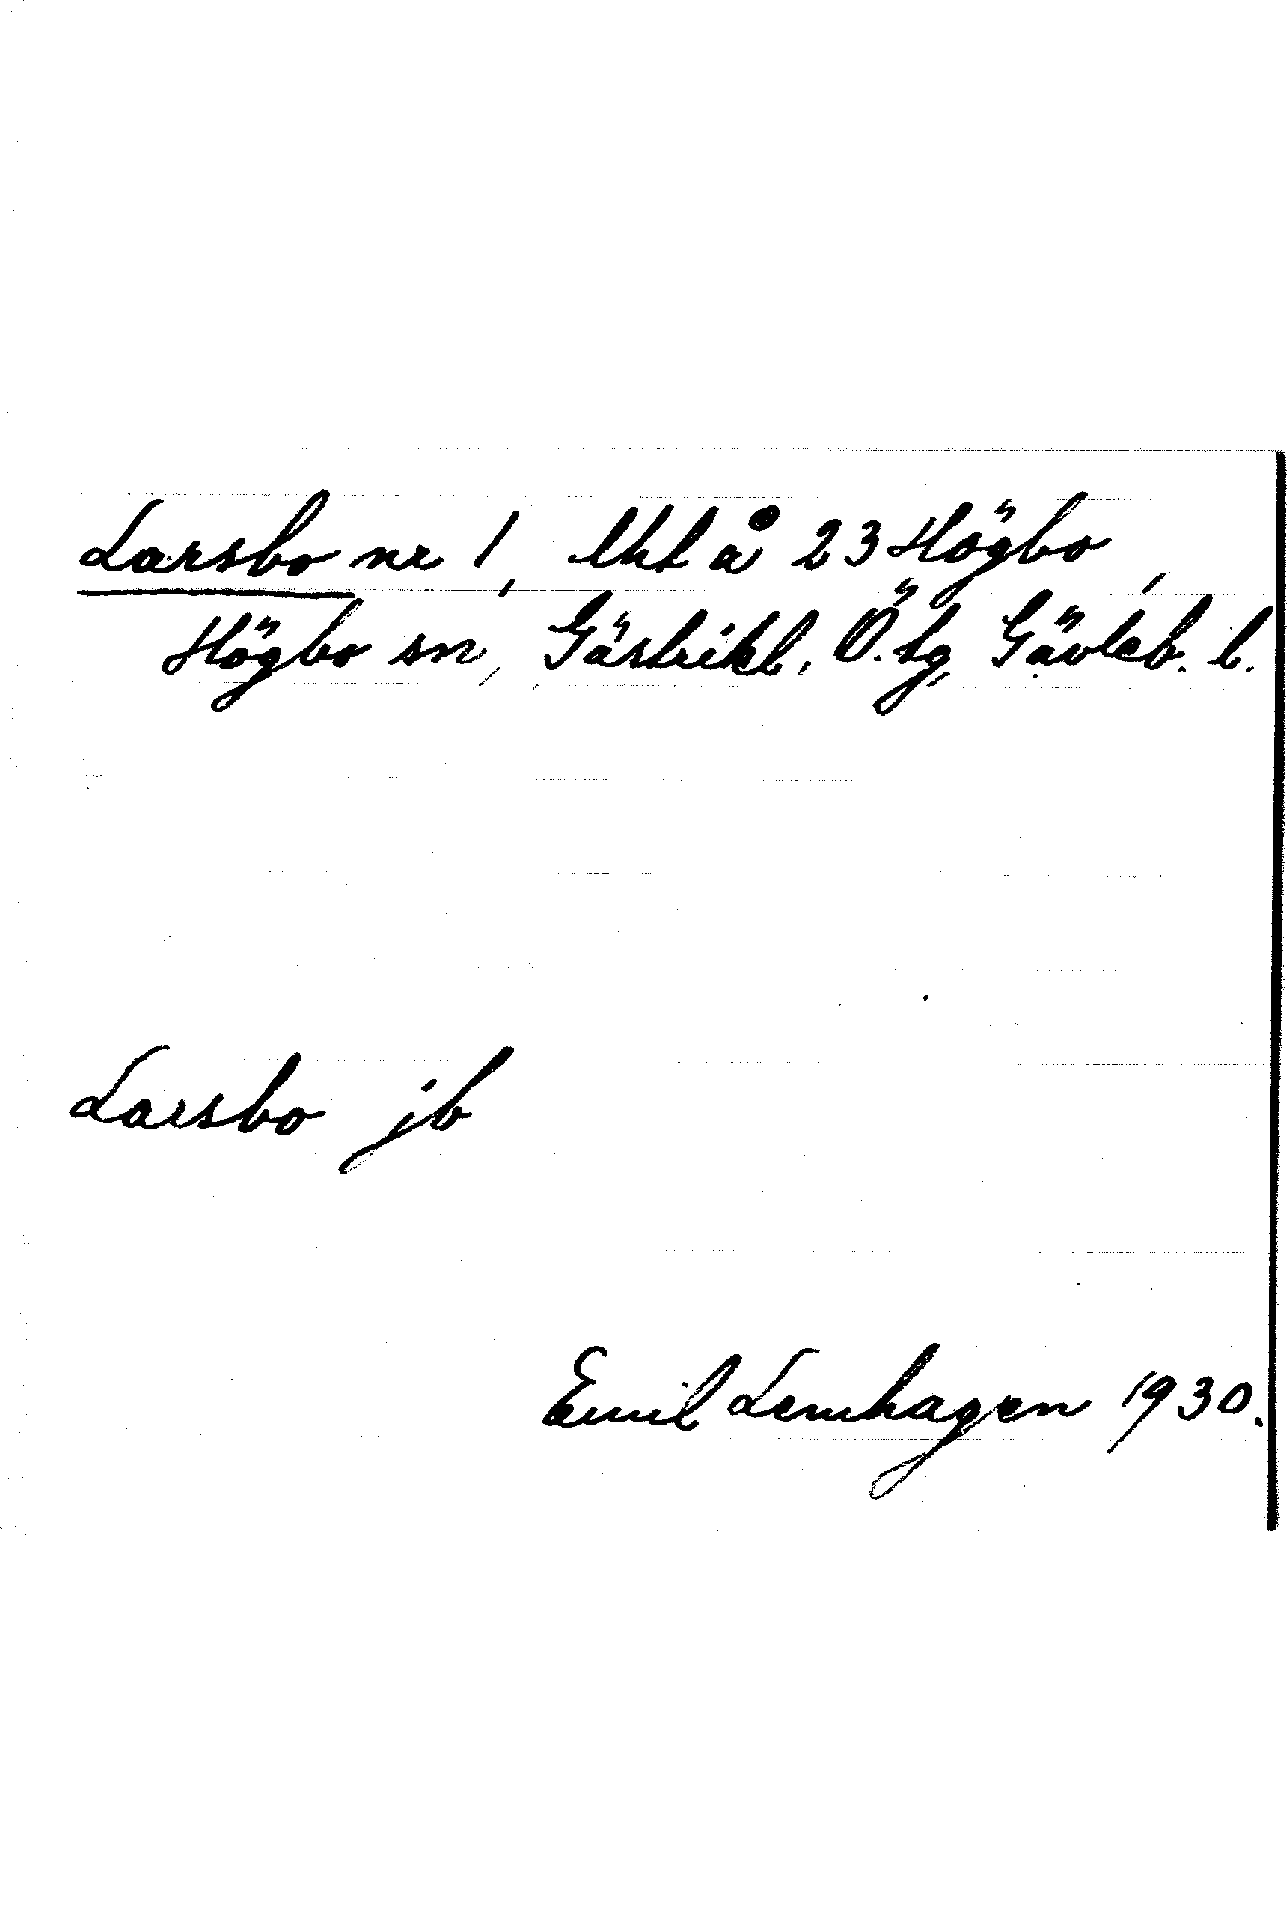 Larsbo nr 1, Utl å 23 Högbo,
Högbo sn, Gästrikl. Ö. tg, Gävleb. l.
Larsbo jb
Emil Lenhagen 1930.